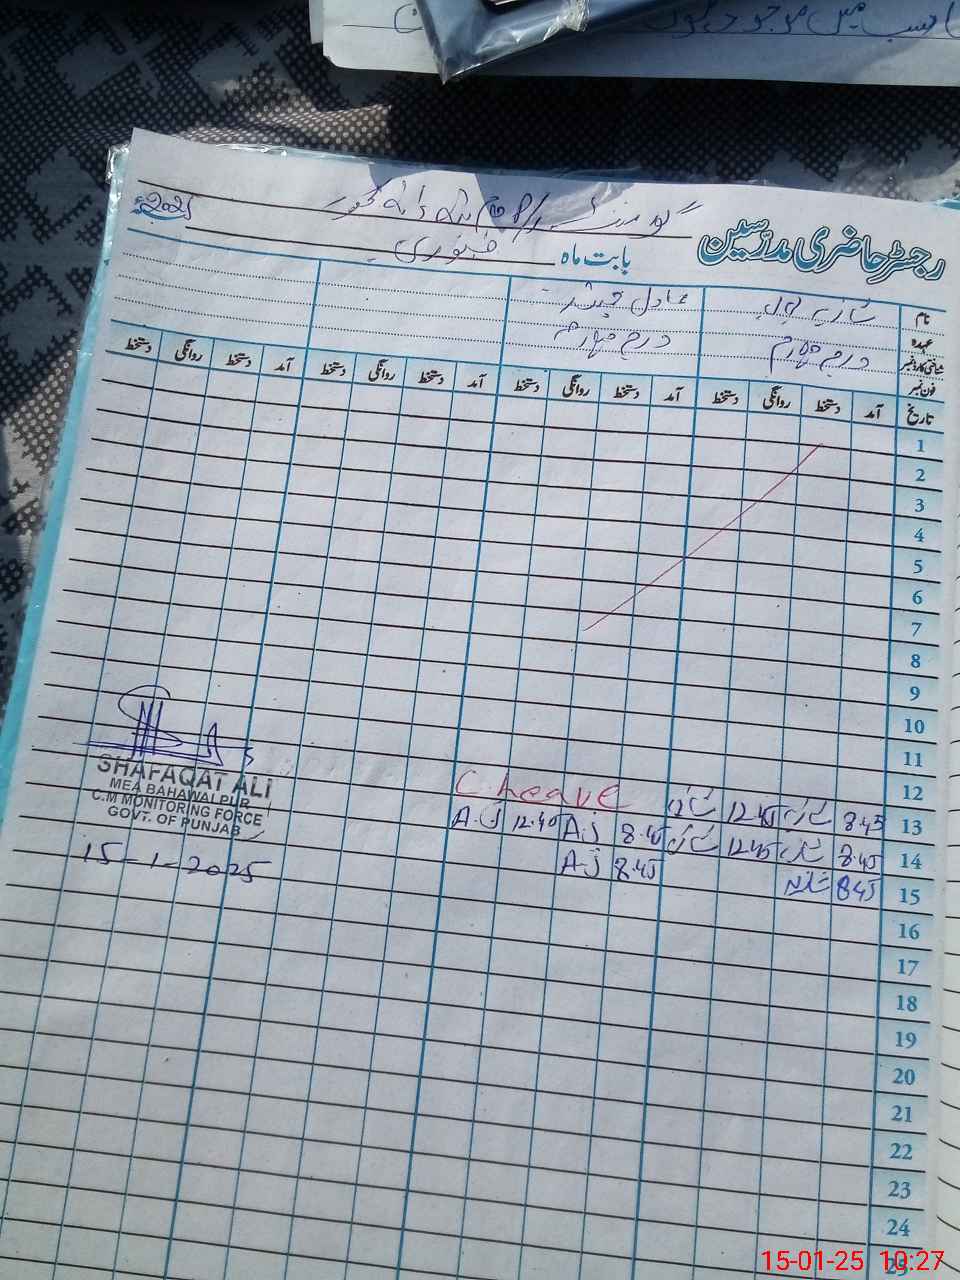 رجسٹر حاضری مدرسین
2025
بابت ماہ جنوری
نام
عہدہ
شناختی کارڈ نمبر
فون نمبر
عادل
درجہ چہارم درجہ چہارم
تاریخ آمد دستخط روانگی دستخط آمد دستخط روانگی دستخط آمد دستخط روانگی دستخط آمد دستخط روانگی دستخط
1
2
3
4
5
6
7
8
9
10
11
12
13 8.45 12.45 C.Leave
14 8.45 12.45 8.45 A.J 12.40 A.J
15 8.45 8.45 A.J
16
17
18
19
20
21
22
23
24
25
SHAFAQAT ALI
MEA BAHAWALPUR
C.M MONITORING FORCE
GOVT. OF PUNJAB
15-1-2025
15-01-25 10:27